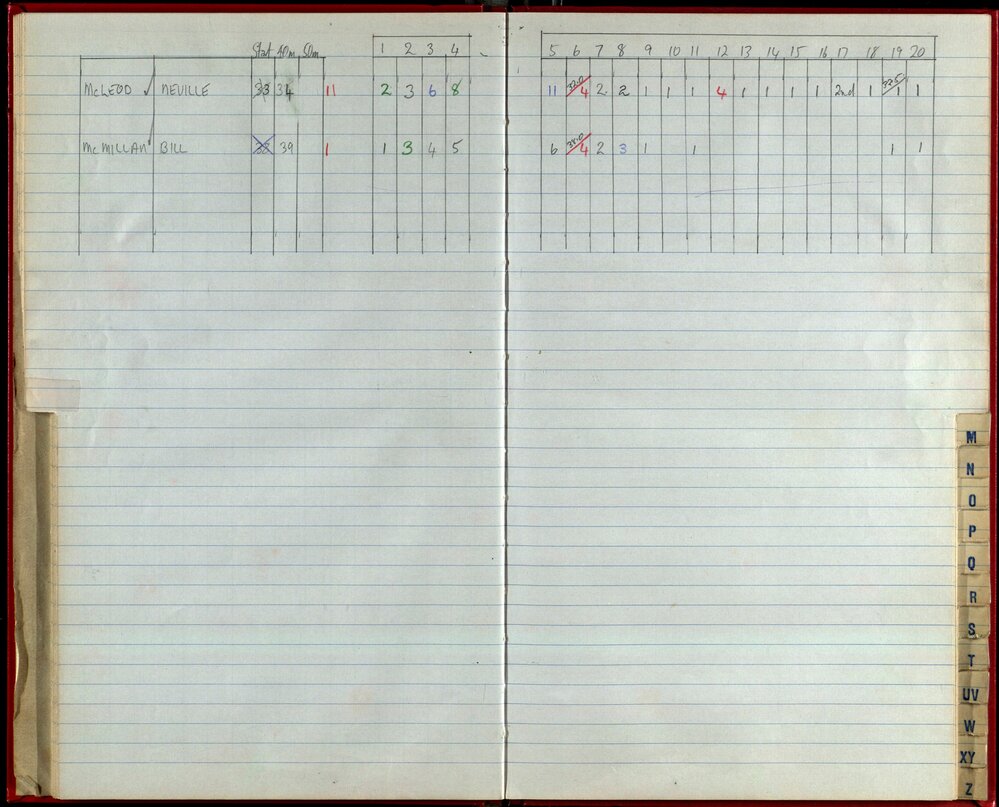 Start 40m 50m 1 2 3 4 5 6 7 8 9 10 11 12 13 14 15 16 17 18 19 20
McLEOD NEVILLE 33 34 11 2 3 6 8 11 32.0 4 2 2 1 1 1 4 1 1 1 1 2nd 1 32.5 1 1
McMILLAN BILL 38 39 1 1 3 4 5 6 38.0 4 2 3 1 1 1 1
M
N
O
P
Q
R
S
T
UV
W
XY
Z